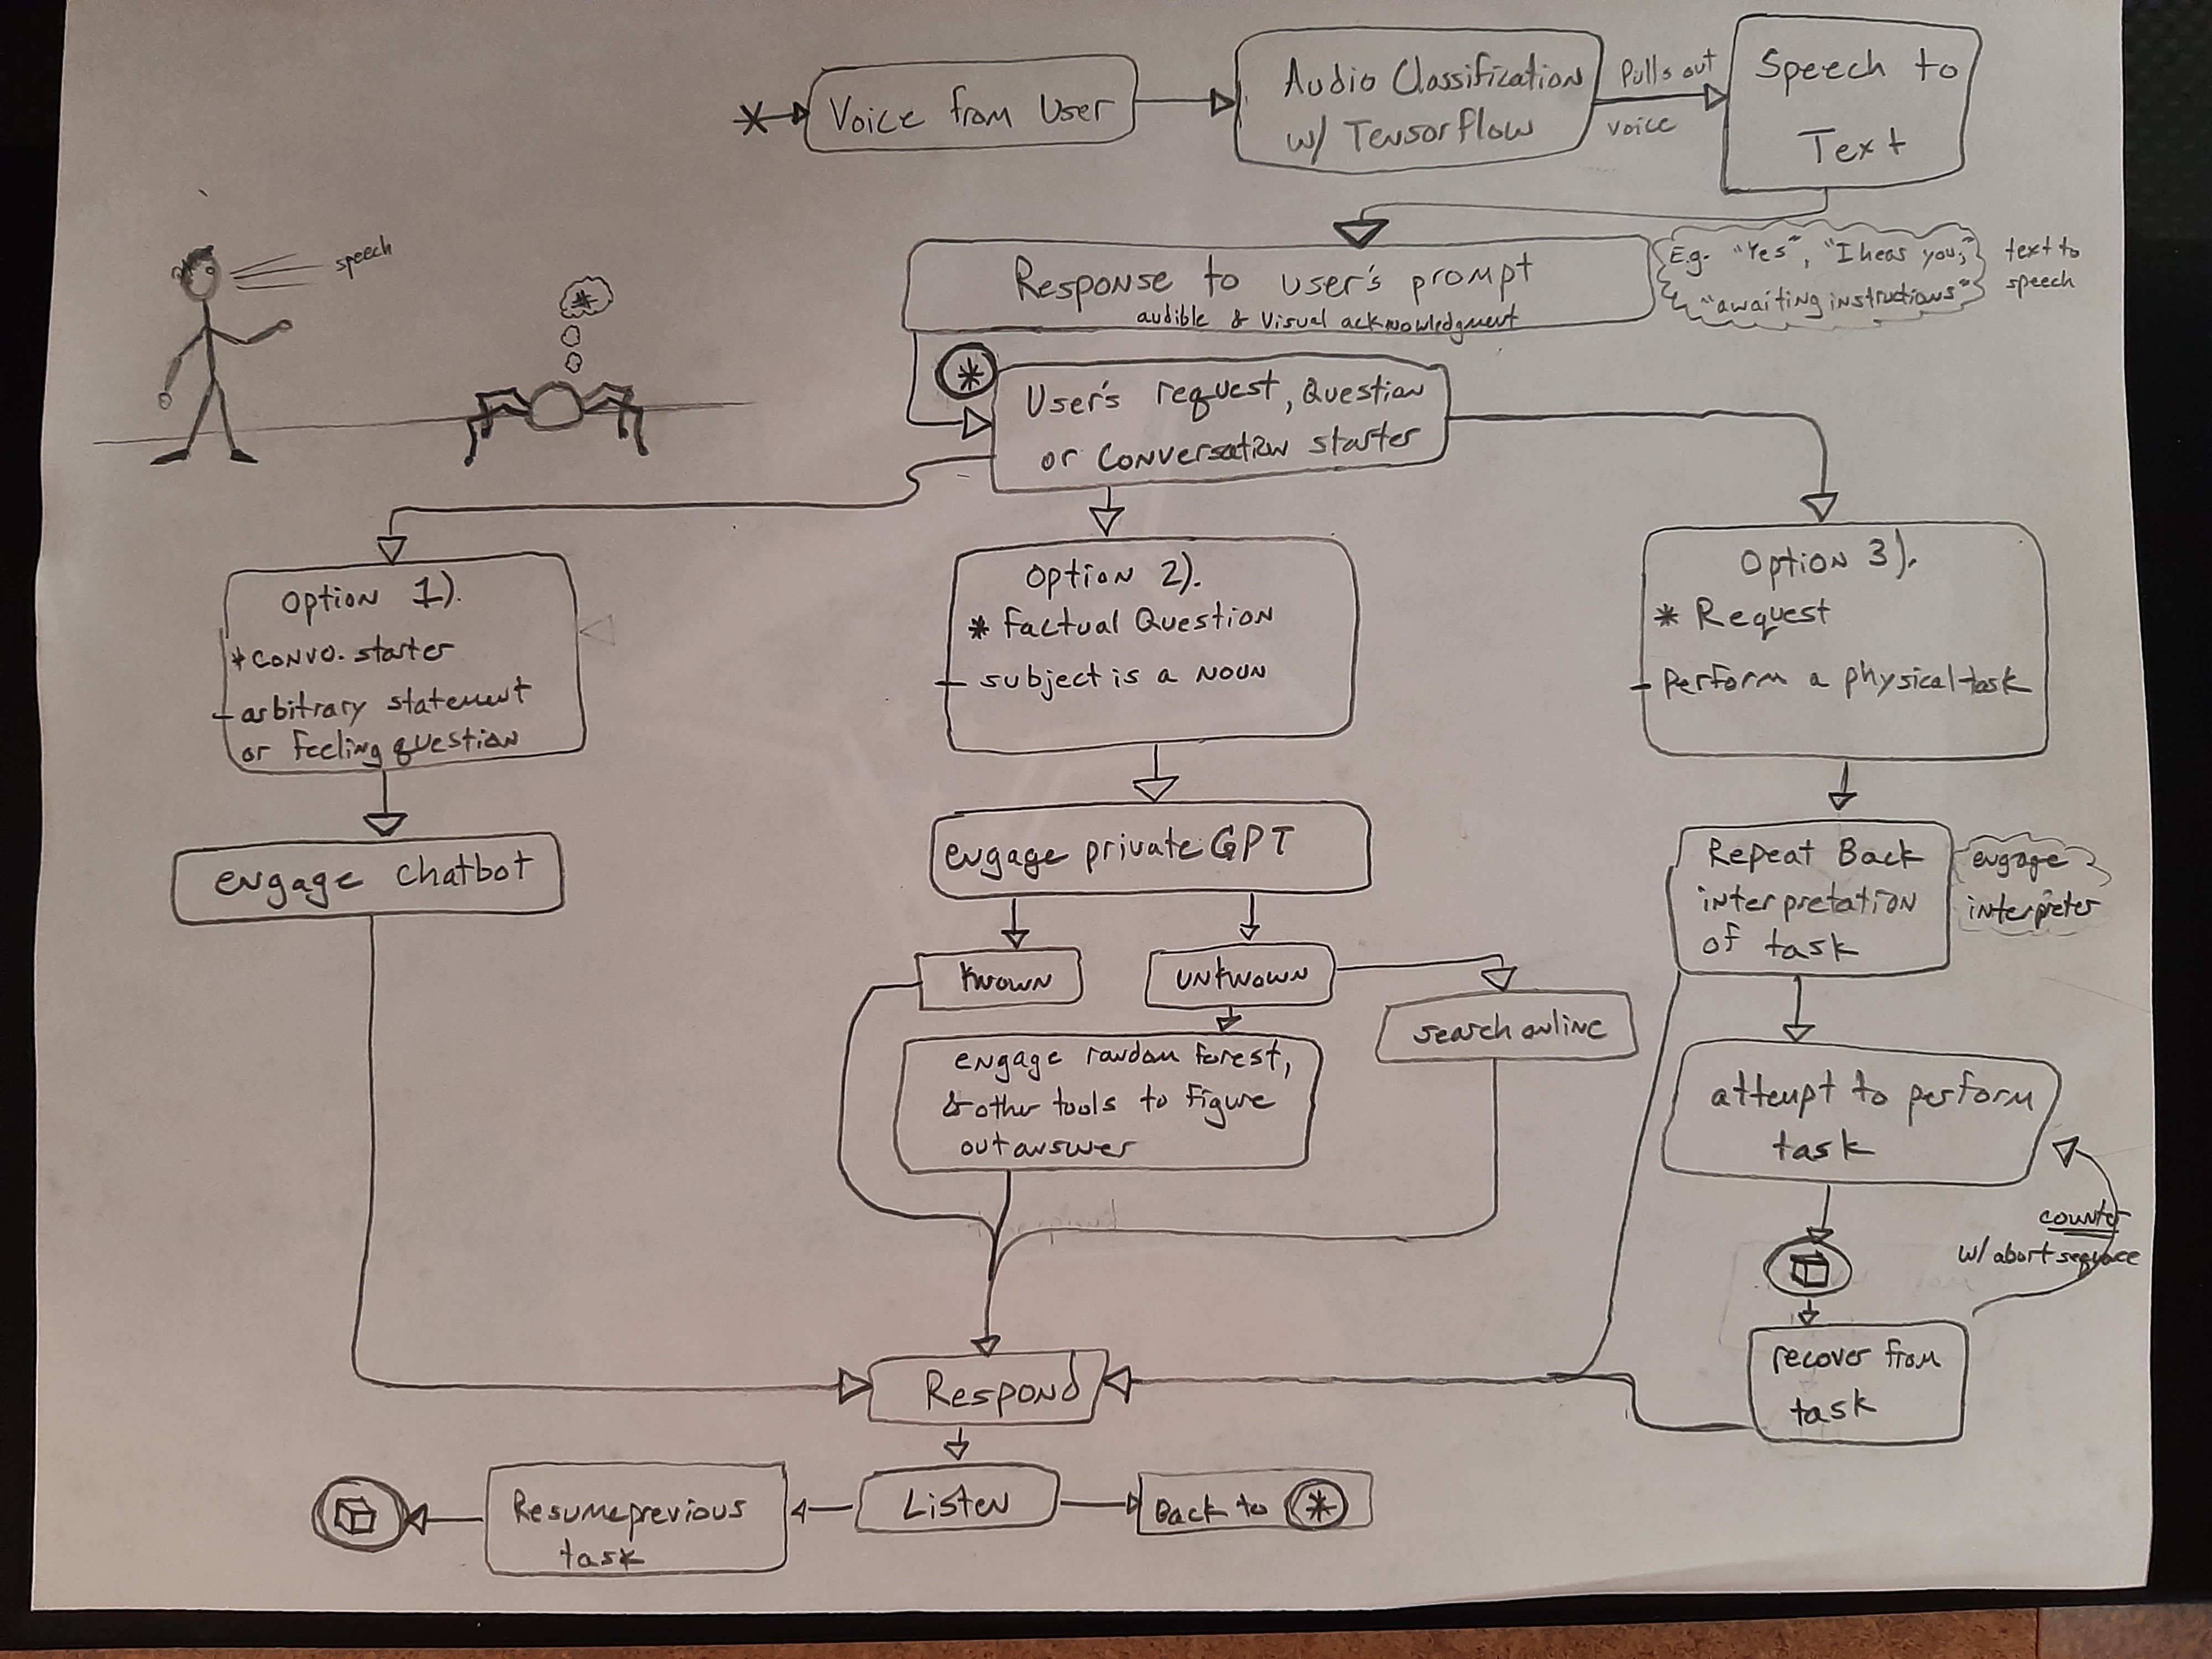 speech
* Voice from User
Audio Classification
w/ Tensorflow
Pulls out
voice
Speech to
Text
Response to user's prompt
audible & visual acknowledgment
E.g. "Yes", "I hear you,"
"awaiting instructions"
text to
speech
*
User's request, Question
or Conversation starter
Option 1).
* convo. starter
- arbitrary statement
or feeling question
engage chatbot
Option 2).
* factual Question
- subject is a noun
engage privateGPT
known
unknown
engage random forest,
& other tools to figure
out answer
search online
Option 3).
* Request
- Perform a physical task
Repeat Back
interpretation
of task
engage
interpreter
attempt to perform
task
recover from
task
counter
w/ abort sequence
Respond
Listen
Back to *
Resume previous
task